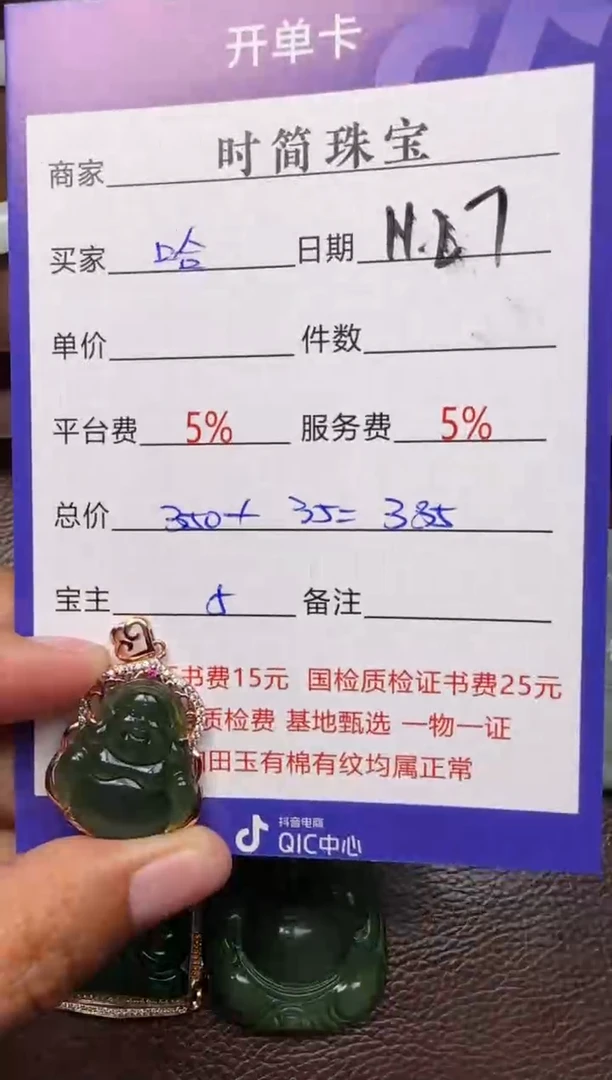 开单卡
商家 时简珠宝
买家 哈 日期
单价 件数
平台费 5% 服务费 5%
总价 350+ 35= 385
宝主 备注
书费15元 国检质检证书费25元
质检费 基地甄选 一物一证
田玉有棉有纹均属正常
抖音电商
QIC中心